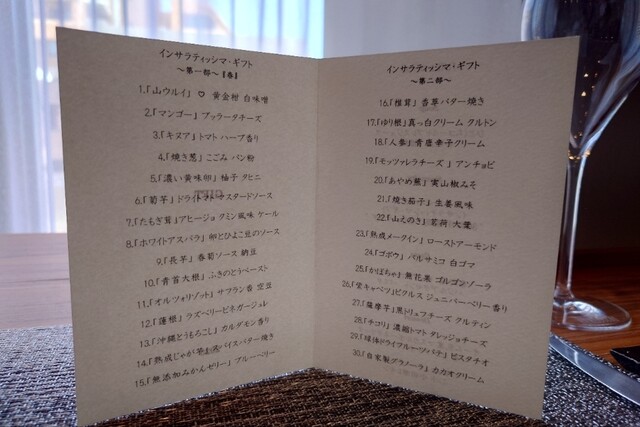 インサラティッシマ・ギフト
～第一部～『春』
1.「山ウルイ」♡ 黄金柑 白味噌
2.「マンゴー」ブッラータチーズ
3.「キヌア」トマト ハーブ香り
4.「焼き葱」こごみ パン粉
5.「濃い黄味卵」柚子 タヒニ
6.「菊芋」ドライトマト マスタードソース
7.「たもぎ茸」アヒージョ クミン風味 ケール
8.「ホワイトアスパラ」卵とひよこ豆のソース
9.「長芋」春菊ソース 納豆
10.「青首大根」ふきのとうペースト
11.「オルツォリゾット」サフラン香 空豆
12.「蓮根」ラズベリービネガージュレ
13.「沖縄とうもろこし」カルダモン香り
14.「熟成じゃが芋」スパイスバター焼き
15.「無添加みかんゼリー」ブルーベリー
インサラティッシマ・ギフト
～第二部～
16.「椎茸」香草バター焼き
17.「ゆり根」真っ白クリーム クルトン
18.「人参」青唐辛子クリーム
19.「モッツァレラチーズ」アンチョビ
20.「あやめ蕪」実山椒みそ
21.「焼き茄子」生姜風味
22.「山えのき」茗荷 大葉
23.「熟成メークイン」ローストアーモンド
24.「ゴボウ」バルサミコ 白ゴマ
25.「かぼちゃ」無花果 ゴルゴンゾーラ
26.「芽キャベツ」ピクルス ジュニパーベリー香り
27.「薩摩芋」黒トリュフチーズ クルティン
28.「チコリ」濃縮トマト タレッジョチーズ
29.「球体ドライフルーツパテ」ピスタチオ
30.「自家製グラノーラ」カカオクリーム